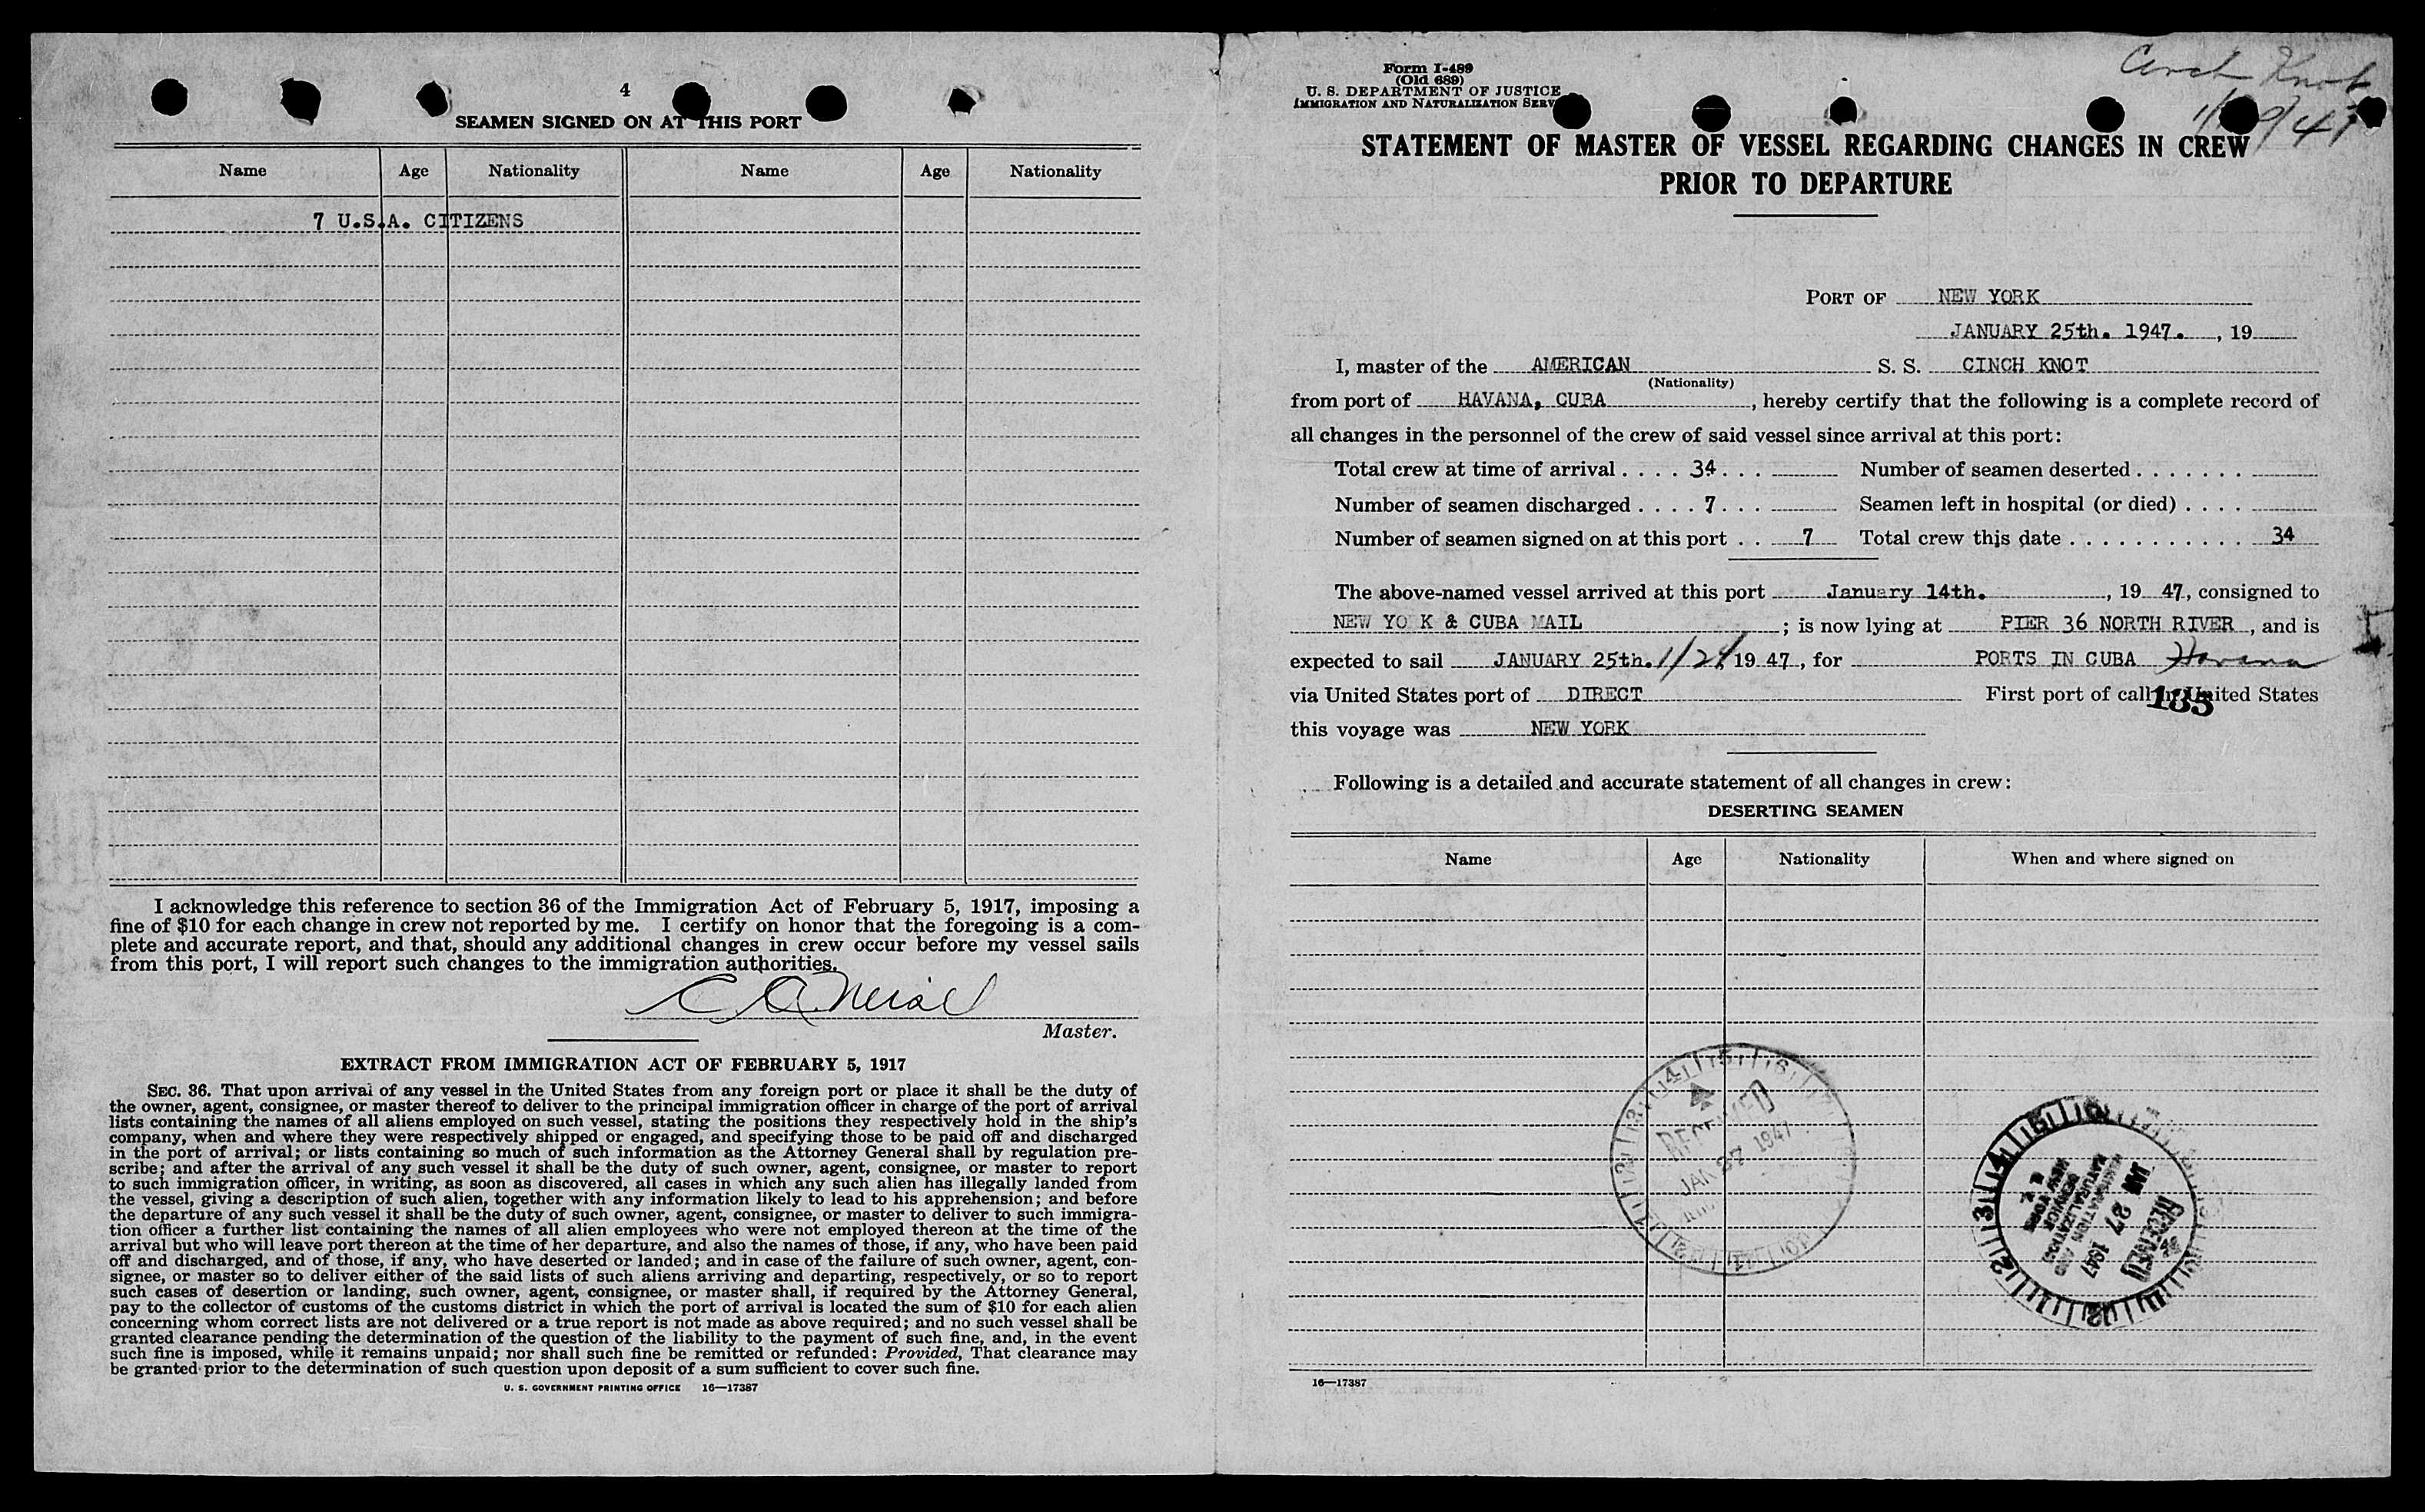 4
SEAMEN SIGNED ON AT THIS PORT
Name Age Nationality Name Age Nationality
7 U.S.A. CITIZENS
I acknowledge this reference to section 36 of the Immigration Act of February 5, 1917, imposing a
fine of $10 for each change in crew not reported by me. I certify on honor that the foregoing is a com-
plete and accurate report, and that, should any additional changes in crew occur before my vessel sails
from this port, I will report such changes to the immigration authorities.
Master.
EXTRACT FROM IMMIGRATION ACT OF FEBRUARY 5, 1917
SEC. 36. That upon arrival of any vessel in the United States from any foreign port or place it shall be the duty of
the owner, agent, consignee, or master thereof to deliver to the principal immigration officer in charge of the port of arrival
lists containing the names of all aliens employed on such vessel, stating the positions they respectively hold in the ship's
company, when and where they were respectively shipped or engaged, and specifying those to be paid off and discharged
in the port of arrival; or lists containing so much of such information as the Attorney General shall by regulation pre-
scribe; and after the arrival of any such vessel it shall be the duty of such owner, agent, consignee, or master to report
to such immigration officer, in writing, as soon as discovered, all cases in which any such alien has illegally landed from
the vessel, giving a description of such alien, together with any information likely to lead to his apprehension; and before
the departure of any such vessel it shall be the duty of such owner, agent, consignee, or master to deliver to such immigra-
tion officer a further list containing the names of all alien employees who were not employed thereon at the time of the
arrival but who will leave port thereon at the time of her departure, and also the names of those, if any, who have been paid
off and discharged, and of those, if any, who have deserted or landed; and in case of the failure of such owner, agent, con-
signee, or master so to deliver either of the said lists of such aliens arriving and departing, respectively, or so to report
such cases of desertion or landing, such owner, agent, consignee, or master shall, if required by the Attorney General,
pay to the collector of customs of the customs district in which the port of arrival is located the sum of $10 for each alien
concerning whom correct lists are not delivered or a true report is not made as above required; and no such vessel shall be
granted clearance pending the determination of the question of the liability to the payment of such fine, and, in the event
such fine is imposed, while it remains unpaid; nor shall such fine be remitted or refunded: Provided, That clearance may
be granted prior to the determination of such question upon deposit of a sum sufficient to cover such fine.
U. S. GOVERNMENT PRINTING OFFICE 16—17387
Form I-489
(Old 689)
U. S. DEPARTMENT OF JUSTICE
IMMIGRATION AND NATURALIZATION SERV
Knot
STATEMENT OF MASTER OF VESSEL REGARDING CHANGES IN CREW
PRIOR TO DEPARTURE
PORT OF NEW YORK
JANUARY 25th. 1947. , 19
I, master of the AMERICAN S. S. CINCH KNOT
(Nationality)
from port of HAVANA, CUBA , hereby certify that the following is a complete record of
all changes in the personnel of the crew of said vessel since arrival at this port:
Total crew at time of arrival . . . . 34 . . . Number of seamen deserted . . . . . . .
Number of seamen discharged . . . . 7 . . . Seamen left in hospital (or died) . . . .
Number of seamen signed on at this port . . 7 Total crew this date . . . . . . . . . . . 34
The above-named vessel arrived at this port January 14th. , 19 47, consigned to
NEW YO K & CUBA MAIL ; is now lying at PIER 36 NORTH RIVER , and is
expected to sail JANUARY 25th. 19 47 , for PORTS IN CUBA Havana
via United States port of DIRECT First port of call in United States
135
this voyage was NEW YORK
Following is a detailed and accurate statement of all changes in crew:
DESERTING SEAMEN
Name Age Nationality When and where signed on
RECEIVED
JAN 27 1947
RECEIVED
JAN 27 1947
IMMIGRATION AND
NATURALIZATION
SERVICE
NEW YORK
N. Y.
16—17387